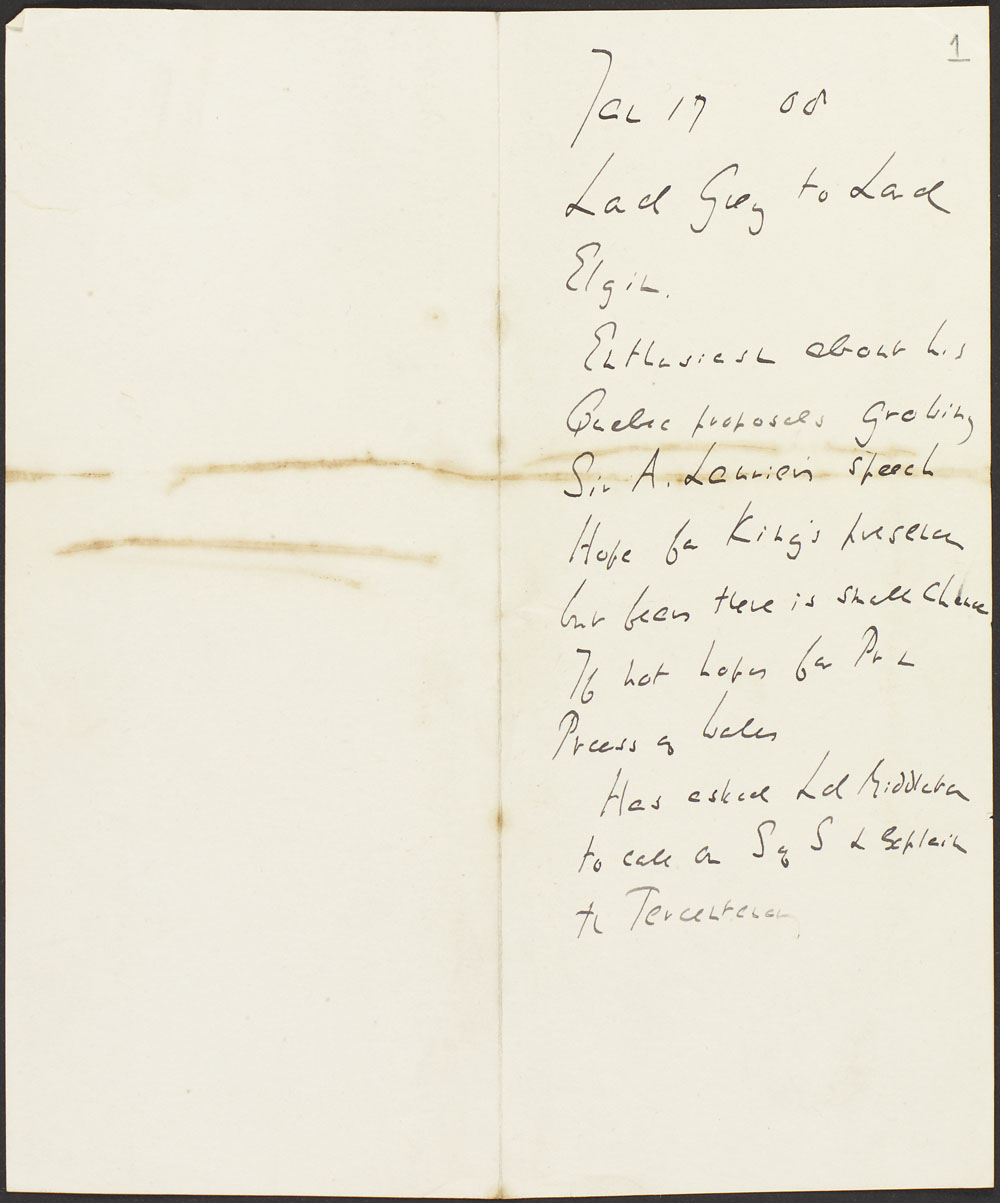 1
Jan 17 08
Lord Grey to Lord
Elgin.
Enthusiasm about his
Quebec proposals growing
Sir A. Laurier's speech
Hope for King's presence
but fears there is small chance
If not hopes for Pr &
Prcess of Wales
Has asked Ld Middleton
to call on S of S & explain
th Tercentenary